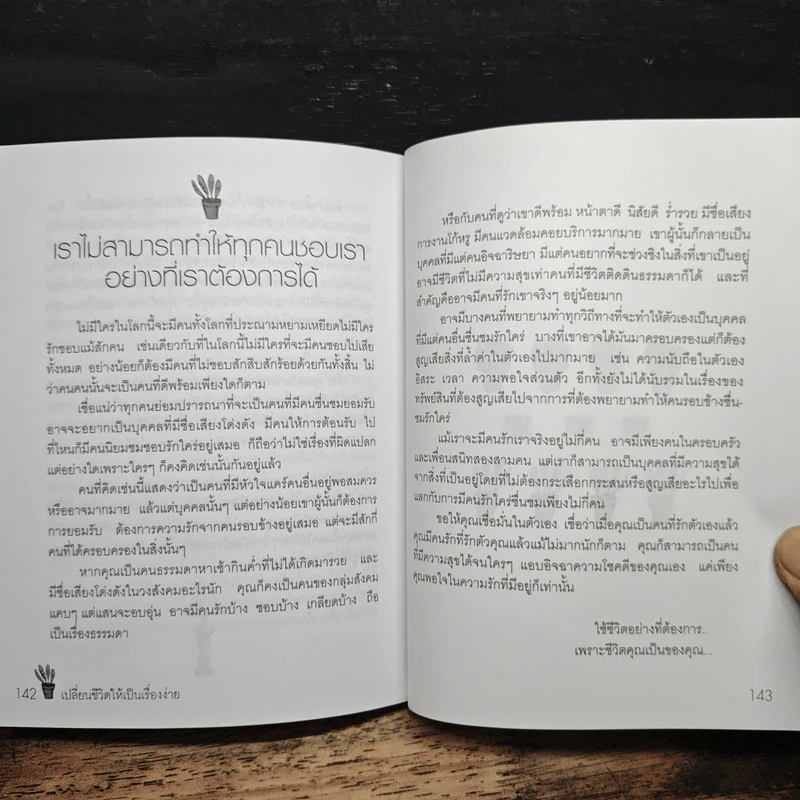 เราไม่สามารถทำให้ทุกคนชอบเรา
อย่างที่เราต้องการได้
ไม่มีใครในโลกนี้จะมีคนทั้งโลกที่ประณามหยามเหยียดไม่มีใคร
รักชอบแม้สักคน เช่นเดียวกับที่ในโลกนี้ไม่มีใครที่จะมีคนชอบไปเสีย
ทั้งหมด อย่างน้อยก็ต้องมีคนที่ไม่ชอบสักสิบสักร้อยด้วยกันทั้งสิ้น ไม่
ว่าคนคนนั้นจะเป็นคนที่ดีพร้อมเพียงใดก็ตาม
เชื่อแน่ว่าทุกคนย่อมปรารถนาที่จะเป็นคนที่มีคนชื่นชมยอมรับ
อาจจะอยากเป็นบุคคลที่มีชื่อเสียงโด่งดัง มีคนให้การต้อนรับ ไป
ที่ไหนก็มีคนนิยมชมชอบรักใคร่อยู่เสมอ ก็ถือว่าไม่ใช่เรื่องที่ผิดแปลก
แต่อย่างใดเพราะใครๆ ก็คงคิดเช่นนั้นกันอยู่แล้ว
คนที่คิดเช่นนี้แสดงว่าเป็นคนที่มีหัวใจแคร์คนอื่นอยู่พอสมควร
หรืออาจมากมาย แล้วแต่บุคคลนั้นๆ แต่อย่างน้อยเขาผู้นั้นก็ต้องการ
การยอมรับ ต้องการความรักจากคนรอบข้างอยู่เสมอ แต่จะมีสักกี่
คนที่ได้ครอบครองในสิ่งนั้นๆ
หากคุณเป็นคนธรรมดาหาเช้ากินค่ำที่ไม่ได้เกิดมารวย และ
มีชื่อเสียงโด่งดังในวงสังคมอะไรนัก คุณก็คงเป็นคนของกลุ่มสังคม
แคบๆ แต่แสนจะอบอุ่น อาจมีคนรักบ้าง ชอบบ้าง เกลียดบ้าง ถือ
เป็นเรื่องธรรมดา
142 เปลี่ยนชีวิตให้เป็นเรื่องง่าย
หรือกับคนที่ดูว่าเขาดีพร้อม หน้าตาดี นิสัยดี ร่ำรวย มีชื่อเสียง
การงานโก้หรู มีคนแวดล้อมคอยบริการมากมาย เขาผู้นั้นก็กลายเป็น
บุคคลที่มีแต่คนอิจฉาริษยา มีแต่คนอยากที่จะช่วงชิงในสิ่งที่เขาเป็นอยู่
อาจมีชีวิตที่ไม่มีความสุขเท่าคนที่มีชีวิตติดดินธรรมดาก็ได้ และที่
สำคัญคืออาจมีคนที่รักเขาจริงๆ อยู่น้อยมาก
อาจมีบางคนที่พยายามทำทุกวิถีทางที่จะทำให้ตัวเองเป็นบุคคล
ที่มีแต่คนอื่นชื่นชมรักใคร่ บางที่เขาอาจได้มันมาครอบครองแต่ก็ต้อง
สูญเสียสิ่งที่ล้ำค่าในตัวเองไปมากมาย เช่น ความนับถือในตัวเอง
อิสระ เวลา ความพอใจส่วนตัว อีกทั้งยังไม่ได้นับรวมในเรื่องของ
ทรัพย์สินที่ต้องสูญเสียไปจากการที่ต้องพยายามทำให้คนรอบข้างชื่น-
ชมรักใคร่
แม้เราจะมีคนรักเราจริงอยู่ไม่กี่คน อาจมีเพียงคนในครอบครัว
และเพื่อนสนิทสองสามคน แต่เราก็สามารถเป็นบุคคลที่มีความสุขได้
จากสิ่งที่เป็นอยู่โดยที่ไม่ต้องกระเสือกกระสนหรือสูญเสียอะไรไปเพื่อ
แลกกับการมีคนรักใคร่ชื่นชมเพียงไม่กี่คน
ขอให้คุณเชื่อมั่นในตัวเอง เชื่อว่าเมื่อคุณเป็นคนที่รักตัวเองแล้ว
คุณมีคนรักที่รักตัวคุณแล้วแม้ไม่มากนักก็ตาม คุณก็สามารถเป็นคน
ที่มีความสุขได้จนใครๆ แอบอิจฉาความโชคดีของคุณเอง แค่เพียง
คุณพอใจในความรักที่มีอยู่ก็เท่านั้น
ใช้ชีวิตอย่างที่ต้องการ..
เพราะชีวิตคุณเป็นของคุณ...
143